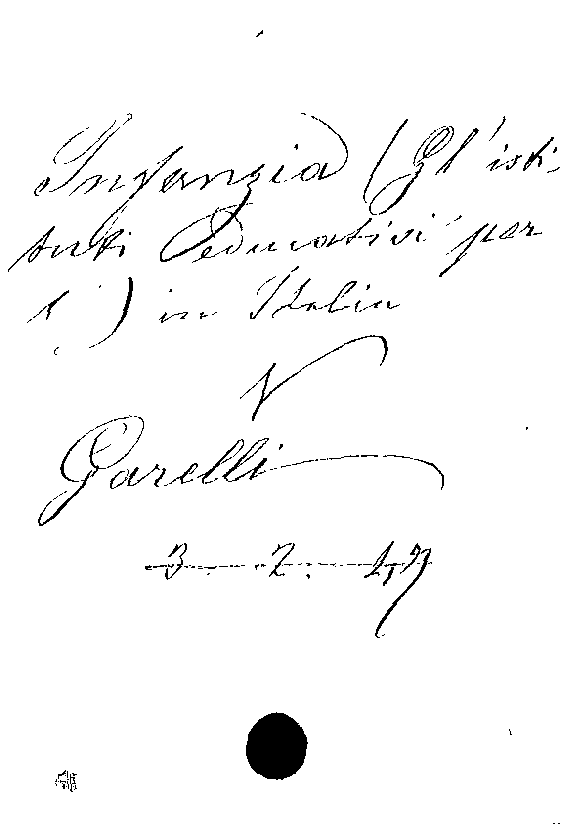 Infanzia (Gl'isti-
tuti educativi per
l') in Italia
V
Garelli
3. 2. 47